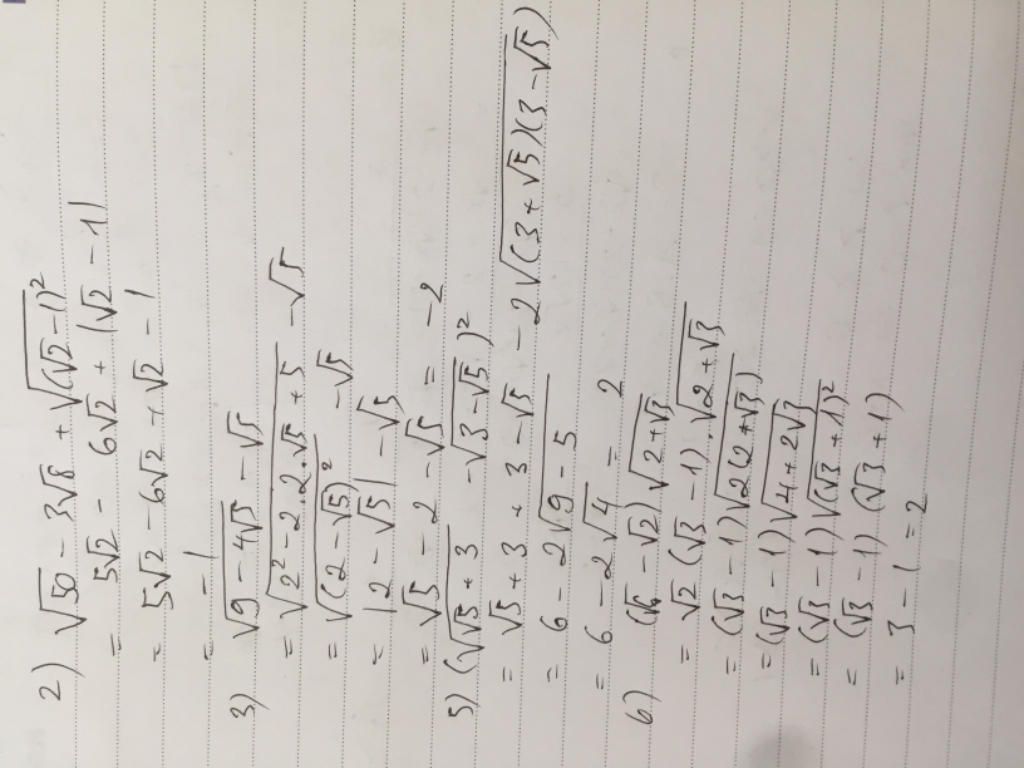 2) √50 - 3√8 + √(√2-1)²
= 5√2 - 6√2 + |√2 - 1|
= 5√2 - 6√2 + √2 - 1
= - 1
3) √9 - 4√5 - √5
= √2² - 2.2.√5 + 5 - √5
= √(2 - √5)² - √5
= |2 - √5| - √5
= √5 - 2 - √5 = -2
5) (√√5 + 3 - √3 - √5)²
= √5 + 3 + 3 - √5 - 2√(3 + √5)(3 - √5)
= 6 - 2√9 - 5
= 6 - 2√4 = 2
6) (√6 - √2)√2 + √3
= √2 (√3 - 1).√2 + √3
= (√3 - 1)√2(2 + √3)
= (√3 - 1)√4 + 2√3
= (√3 - 1)√(√3 + 1)²
= (√3 - 1) (√3 + 1)
= 3 - 1 = 2